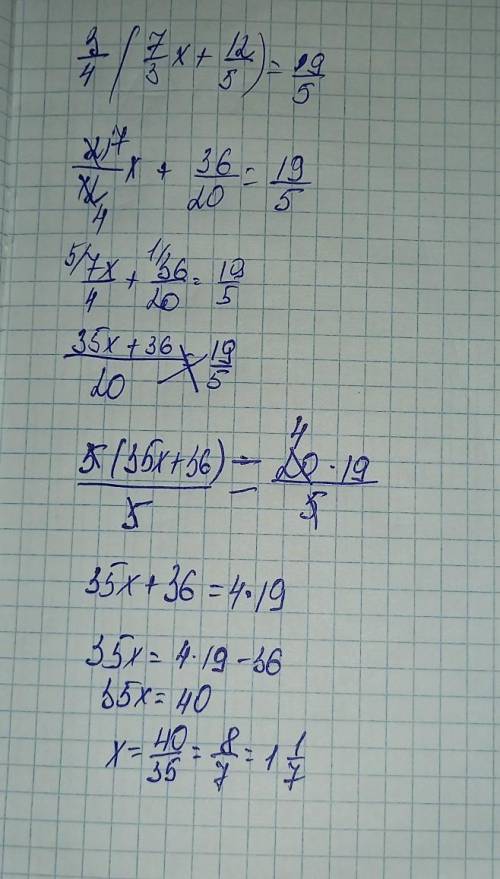 3/4 ( 7/3 x + 12/5 ) = 19/5
21 7/12 4 x + 36/20 = 19/5
5/ 7x/4 + 1/ 36/20 = 19/5
35x + 36/20 = 19/5
5(35x+36)/5 = 4 20 · 19/5
35x + 36 = 4 · 19
35x = 4 · 19 - 36
35x = 40
x = 40/35 = 8/7 = 1 1/7